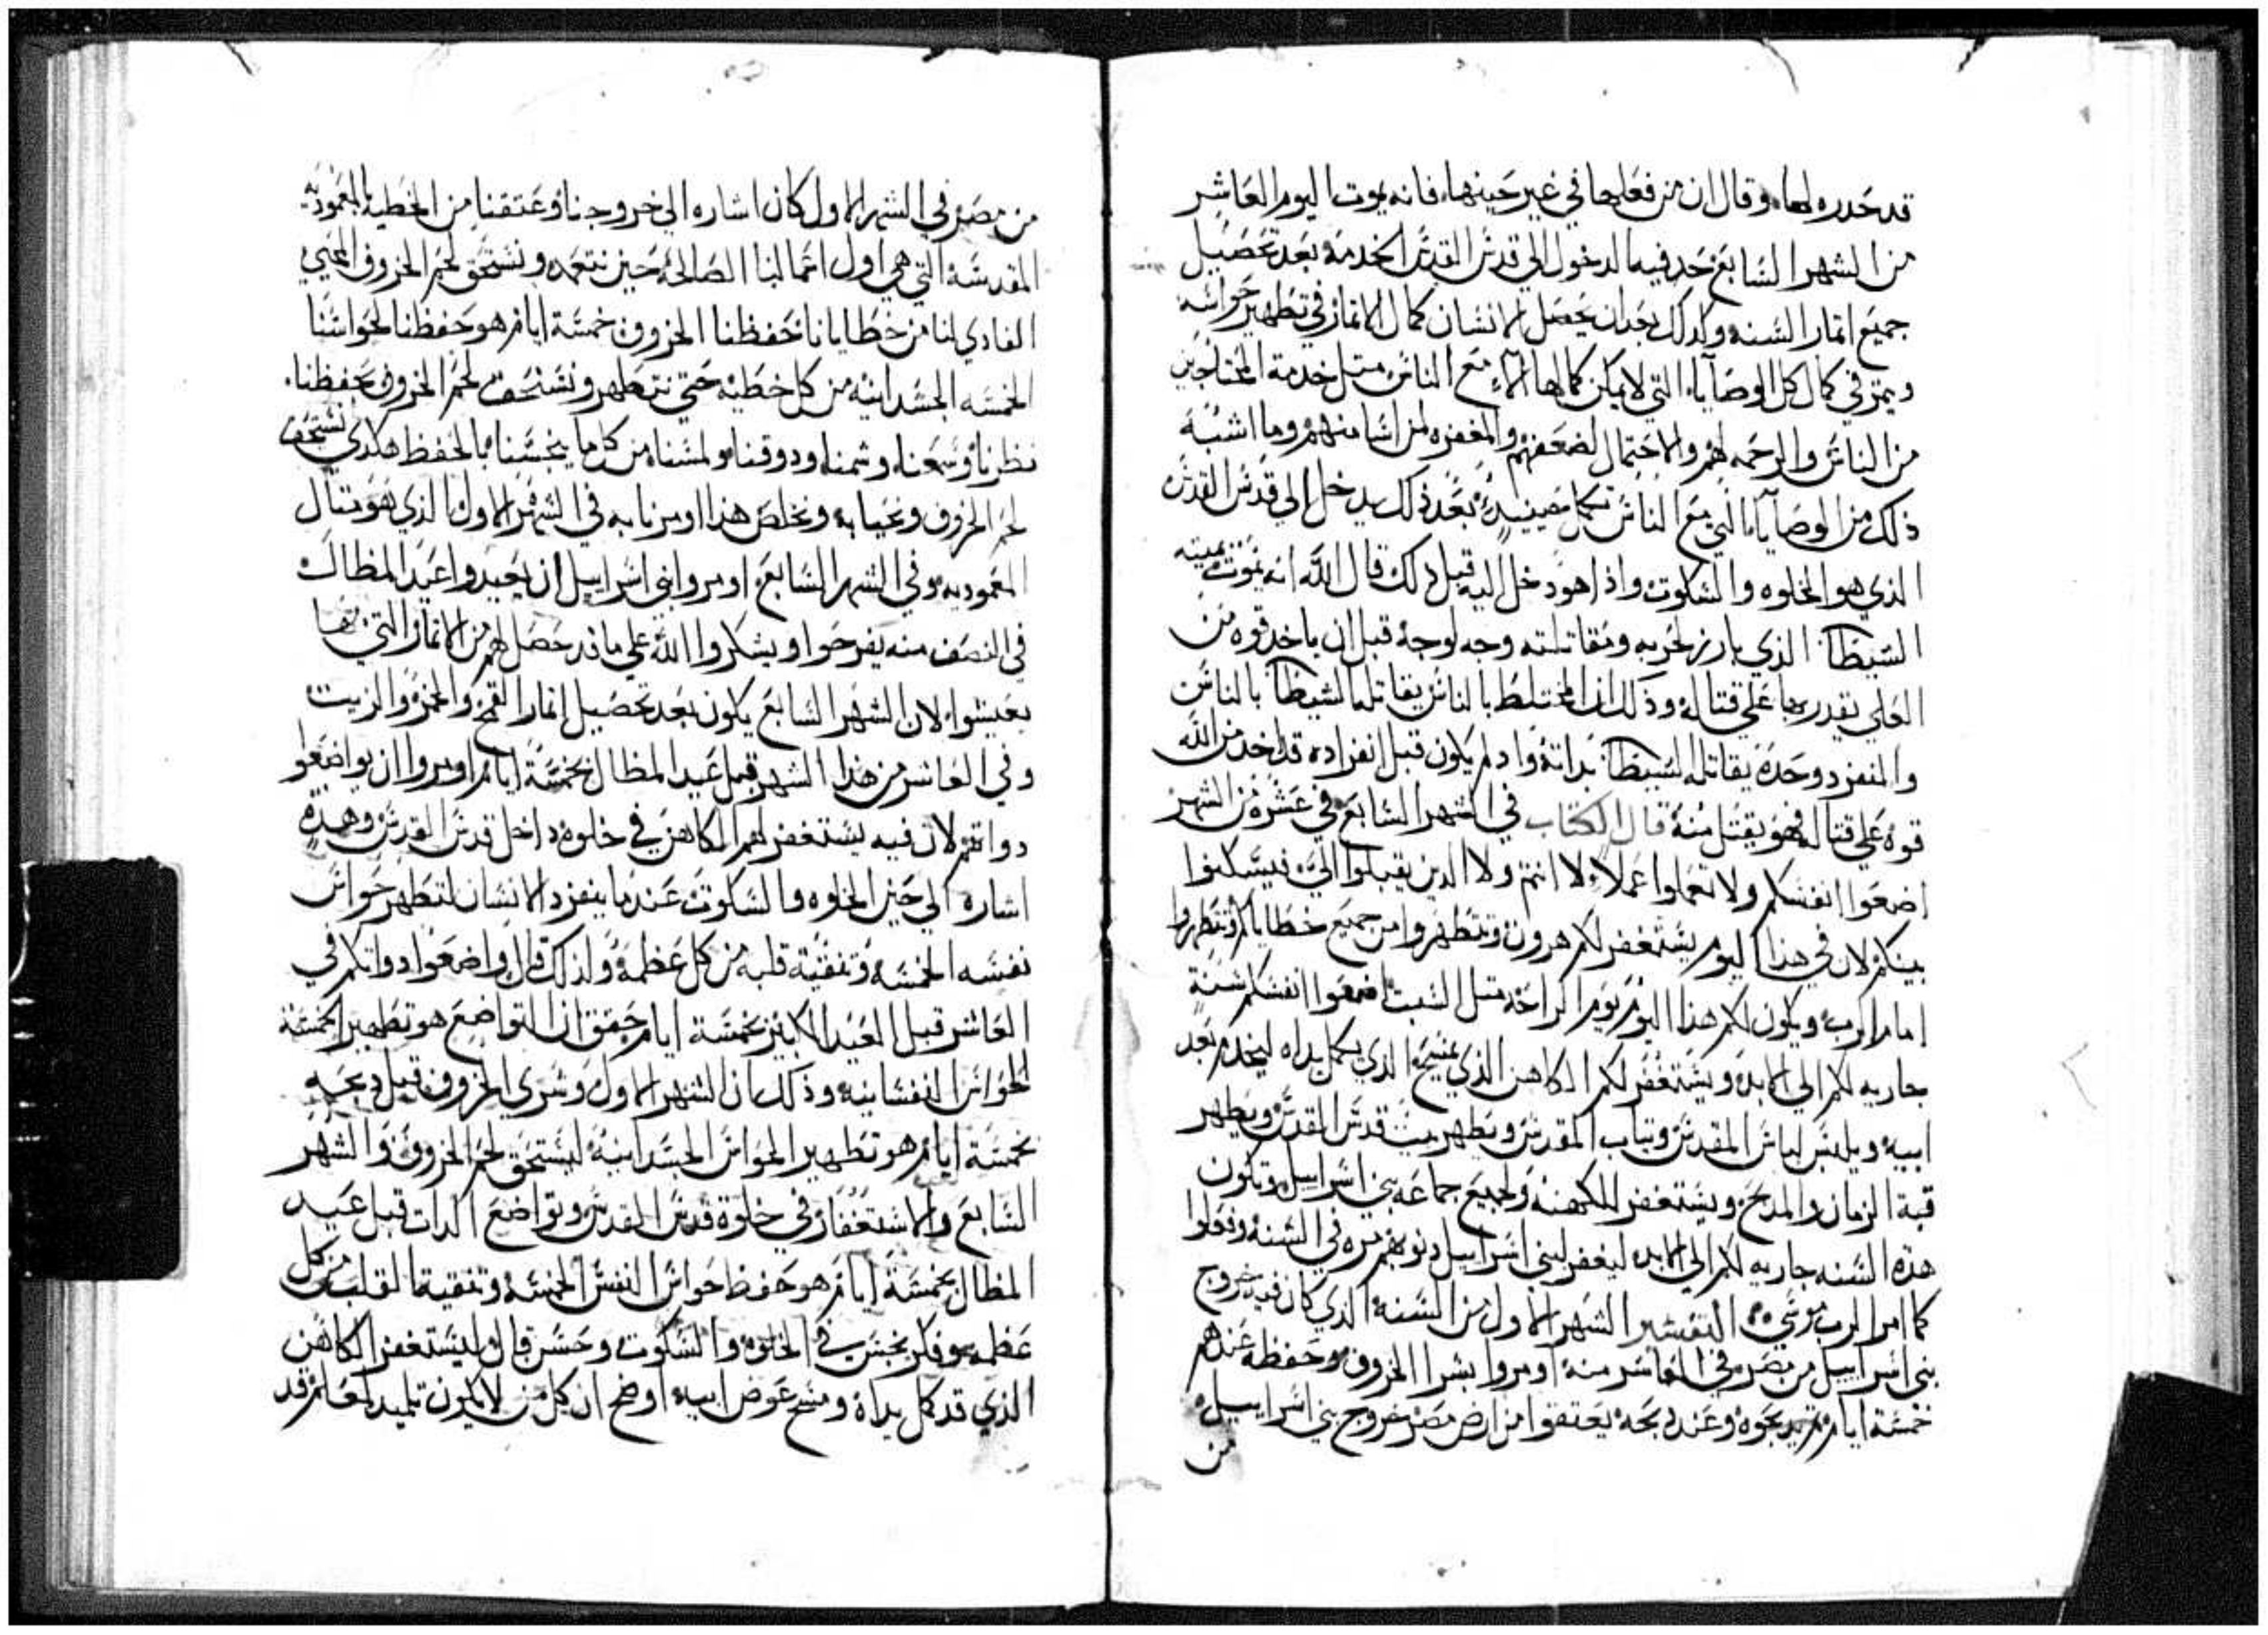 قد حدده لها وقال ان من فعلها في غير حينها فانه يموت اليوم العاشر
من الشهر السابع حد فيه الدخول الي قدس القدس لخدمه بعد تحصيل
جميع اتمار السنه وكدلك بعد ان يحصل الانسان كمال الاتمار في تطهير حواسه
ويتمر في كمال كل الوصايا التي لا يمكن كمالها الا مع الناس متل خدمة المحتاجين
من الناس والرحمه لهم والاحتمال لضعفهم والمغفره لمن اسا منهم وما اشبه
ذلك من الوصايا التي مع الناس تكمل حينيد بعد ذلك يدخل الي قدس القدس
الذي هو الخلوه والسكوت واذا هو دخل اليه قبل ذلك قال الله انه يموت يميته
الشيطان الذي بارز لحربه ومقاتلته وجه لوجه قبل ان ياخد قوه من
العلي يقدر بها علي قتاله وذلك ان المختلط بالناس يقاتله الشيطان بالناس
والمنفرد وحده يقاتله الشيطان بداته وادا لم يكون قبل انفراده قد اخد من الله
قوه علي قتاله فهو يقتل منه قال الكتاب في الشهر السابع في عشره من الشهر
اضعوا انفسكم ولا تعملوا عملا لا انتم ولا الدين يقبلوا الي فيسكنوا
بينكم لان في هذا اليوم يستغفر لكم هرون وتتطهروا من جميع خطاياكم وتتطهروا
امام الرب ويكون لكم هذا اليوم يوم الراحه متل السبت اضعوا انفسكم سنة
جاريه لكم الي الابد ويستغفر لكم الكاهن الذي يمسح الذي يكمل يداه ليخدم بعد
ابيه ويلبس لباس المقدس وتياب المقدس ويطهر بيت قدس القدس ويطهر
قبة الزمان والمدبح ويستغفر للكهنه ولجميع جماعه بني اسراييل وتكون
هذه السنه جاريه لكم الي الابد ليغفر لبني اسراييل دنوبهم مره في السنه وفعلوا
كما امر الرب موسي التفسير الشهر الاول من السنه الدي كان فيه خروج
بني اسراييل من مصر في العاشر منه اومروا بشرا الخروف وحفظه عندهم
خمسة ايام تم يدبحوه وعند دبحه يعتقوا من ارض مصر خروج بني اسراييل
من
من مصر في الشهر الاول كان اشاره الي خروجنا وعتقنا من الخطيه بالمعموديه
المقدسه التي هي اول اتمالنا الصالحه حين نتعمد ونستحق لحم الخروف المحيي
الفادي لنا من خطايانا نحفظنا الخروف خمسة ايام هو حفظنا لحواسنا
الخمسه الجسدانيه من كل خطيه حتي نتطهر ونستحق لحم الخروف بحفظنا
نظرنا وسمعنا وشمنا ودوقنا ولمسنا من كل ما ينجسنا بالحفظ هكدي نستحق
لحم الخروف ونحيا به ونخلص هذا اومرنا به في الشهر الاول الذي هو متال
المعموديه وفي الشهر السابع اومروا بني اسراييل ان يعيدوا عيد المظال
في النصف منه يفرحوا ويشكروا الله علي ما قد حصل لهم من الاتمار التي بها
يعيشوا لان الشهر السابع يكون بعد تحصيل اتمار القمح والخمر والزيت
وفي العاشر من هذا الشهر قبل عيد المظال بخمسة ايام اومروا ان يواضعوا
دواتهم لان فيه يستغفر لهم الكاهن في خلوه داخل قدس القدس وهده
اشاره الي حين الخلوه والسكوت عندما ينفرد الانسان لتطهر حواس
نفسه الخمسه وتنقية قلبه من كل عظمه ولذلك قال واضعوا دواتكم في
العاشر قبل العيد الكبير بخمسة ايام حقق ان التواضع هو تطهير الخمسة
الحواس النفسانيه وذلك ان الشهر الاول وشري الخروف قبل دبحه
بخمسة ايام هو تطهير الحواس الجسدانيه ليستحق لحم الخروف والشهر
السابع والاستغفار في خلوة قدس القدس وتواضع الدات قبل عيد
المظال بخمسة ايام هو حفظ حواس النفس الخمسه وتنقية القلب من كل
عظمه وفكر نجس في الخلوه والسكوت وحسن قال ليستغفر الكاهن
الذي قد كمل يداه ومسح عوض ابيه اوضح ان كل من لا يكون تلميد لمعلم قد